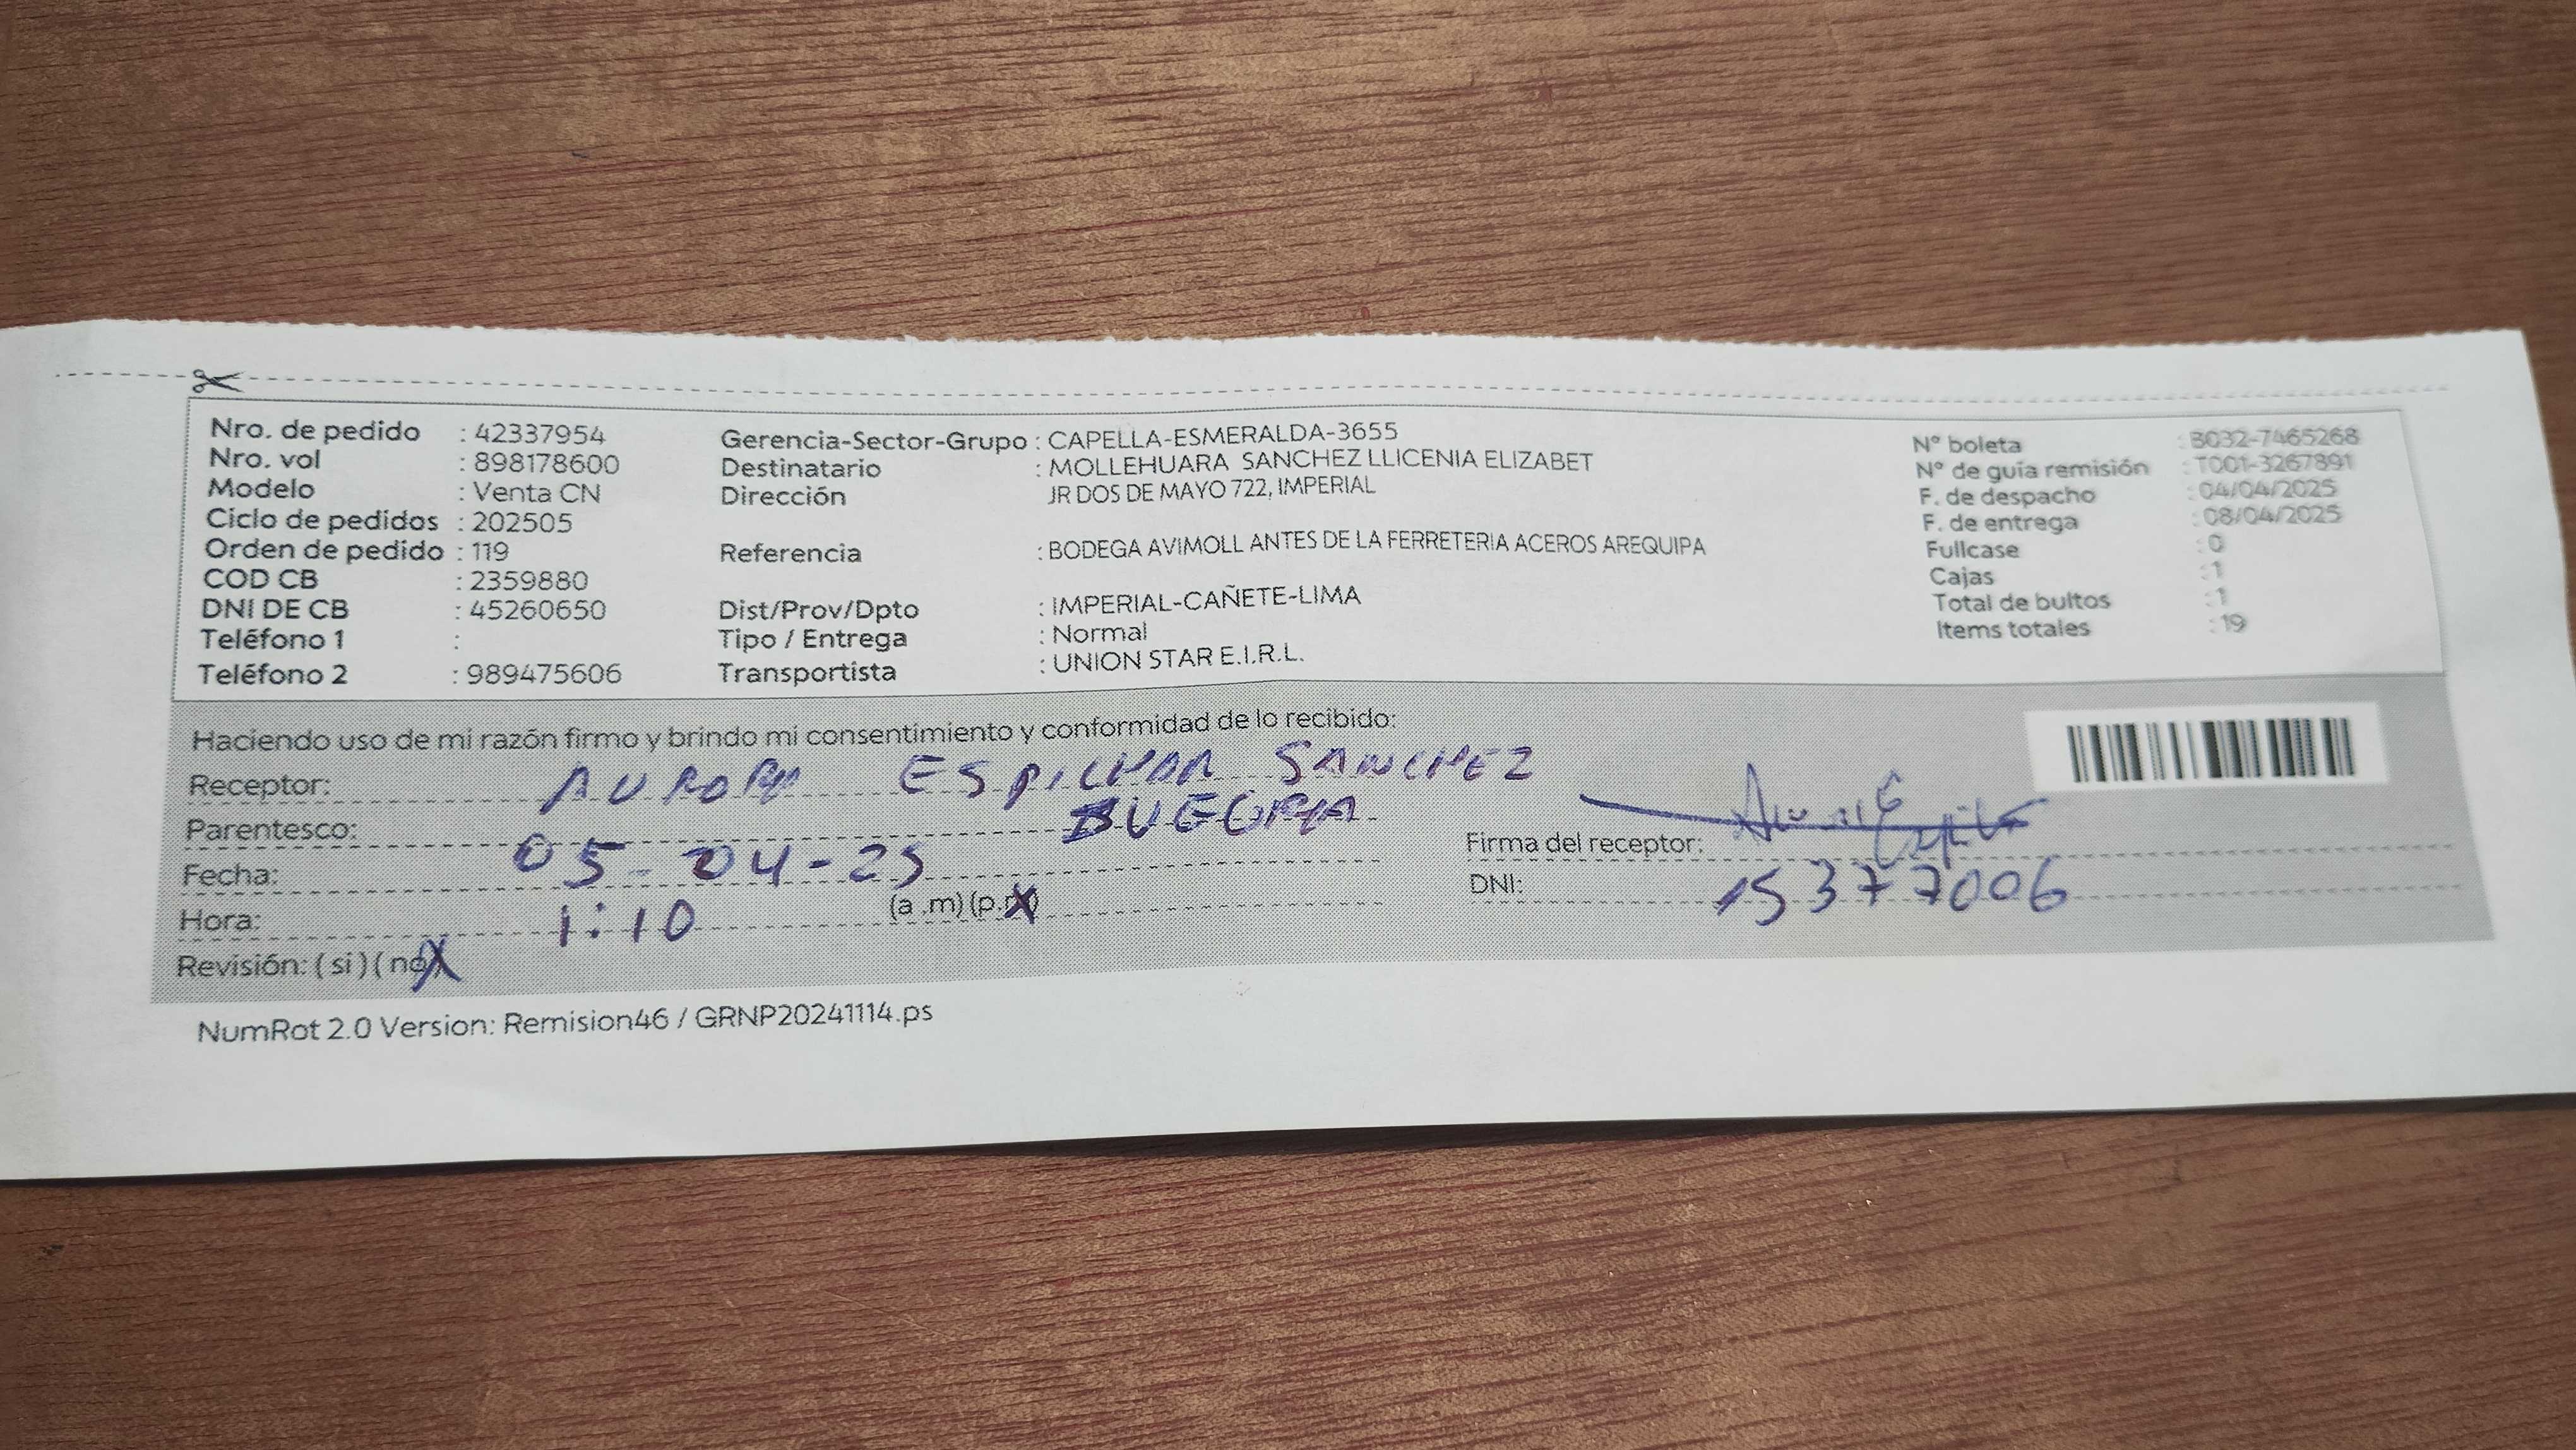 Nro. de pedido : 42337954
Nro. vol : 898178600
Modelo : Venta CN
Ciclo de pedidos : 202505
Orden de pedido : 119
COD CB : 2359880
DNI DE CB : 45260650
Teléfono 1 :
Teléfono 2 : 989475606
Gerencia-Sector-Grupo : CAPELLA-ESMERALDA-3655
Destinatario : MOLLEHUARA SANCHEZ LLICENIA ELIZABET
Dirección JR DOS DE MAYO 722, IMPERIAL
Referencia : BODEGA AVIMOLL ANTES DE LA FERRETERIA ACEROS AREQUIPA
Dist/Prov/Dpto : IMPERIAL-CAÑETE-LIMA
Tipo / Entrega : Normal
Transportista : UNION STAR E.I.R.L.
N° boleta : B032-7465268
N° de guía remisión : T001-3267891
F. de despacho : 04/04/2025
F. de entrega : 08/04/2025
Fullcase : 0
Cajas : 1
Total de bultos : 1
Items totales : 19
Haciendo uso de mi razón firmo y brindo mi consentimiento y conformidad de lo recibido:
Receptor: AURORA SANCHEZ
Parentesco:
Fecha: 05-04-25
Hora: 1:10 (a .m) (p.m)
Revisión: ( si ) ( no )
Firma del receptor:
DNI: 15377006
NumRot 2.0 Version: Remision46 / GRNP20241114.ps